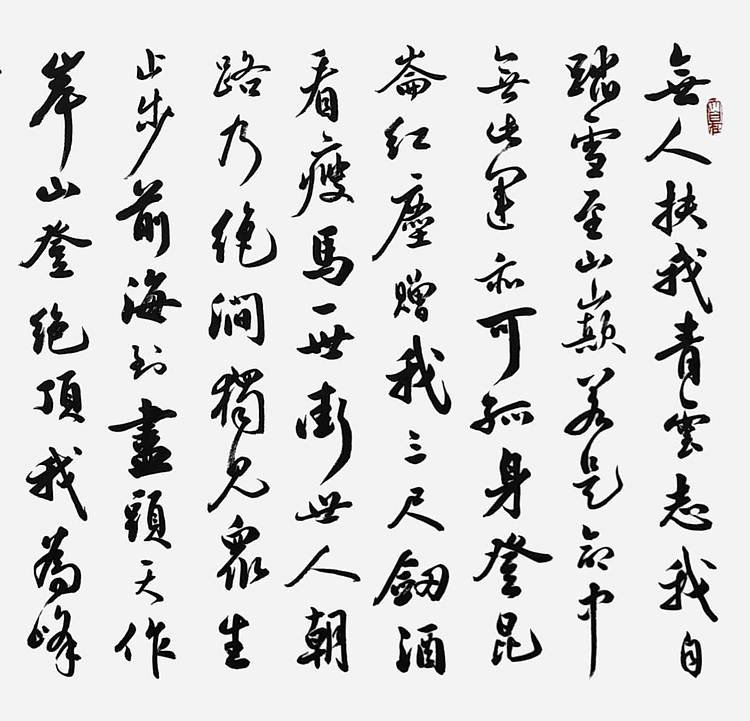 無人扶我青雲志我自
踏雪至山巔若是命中
無此運亦可孤身登昆
崙紅塵贈我三尺劍酒
看瘦馬一世街世人朝
路乃絶澗獨見眾生
止步前海到盡頭天作
岸山登絶頂我為峰